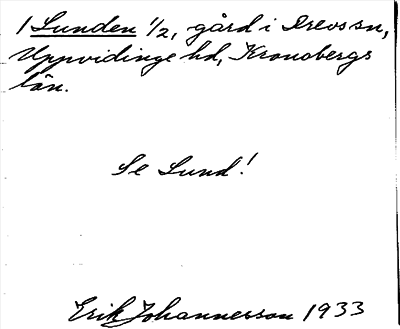 1 Lunden 1/2, gård i Drevs sn,
Uppvidinge hd, Kronobergs
län.
Se Lund!
Erik Johannesson 1933